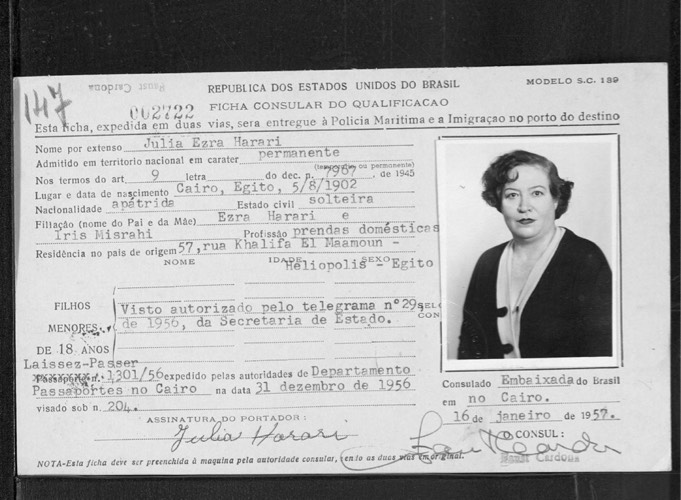 147
Faust Cardona
REPUBLICA DOS ESTADOS UNIDOS DO BRASIL
MODELO S.C. 139
002722
FICHA CONSULAR DO QUALIFICACAO
Esta ficha, expedida em duas vias, sera entregue à Policia Maritima e a Imigraçao no porto do destino
Nome por extenso Julia Ezra Harari
Admitido em territorio nacional em carater permanente
(temporario ou permanente)
Nos termos do art 9 letra do dec. n. 7967 de 1945
Lugar e data de nascimento Cairo, Egito, 5/8/1902
Nacionalidade apátrida Estado civil solteira
Filiação (nome do Pai e da Mãe) Ezra Harari e
Iris Misrahi Profissão prendas domésticas
Residência no pais de origem 57, rua Khalifa El Maamoun -
NOME IDADE SEXO
Héliopolis - Egito
FILHOS
MENORES
DE 18 ANOS
Visto autorizado pelo telegrama nº 29, de 1956, da Secretaria de Estado.
Laissez-Passer
Passaporte n. 1301/56 expedido pelas autoridades de Departamento
Passaportes no Cairo na data 31 dezembro de 1956
visado sob n. 204.
ASSINATURA DO PORTADOR:
Julia Harari
Consulado Embaixada do Brasil
em no Cairo.
16 de janeiro de 1957.
O CONSUL:
Faust Cardona
NOTA-Esta ficha deve ser preenchida à maquina pela autoridade consular, sento as duas vias em original.